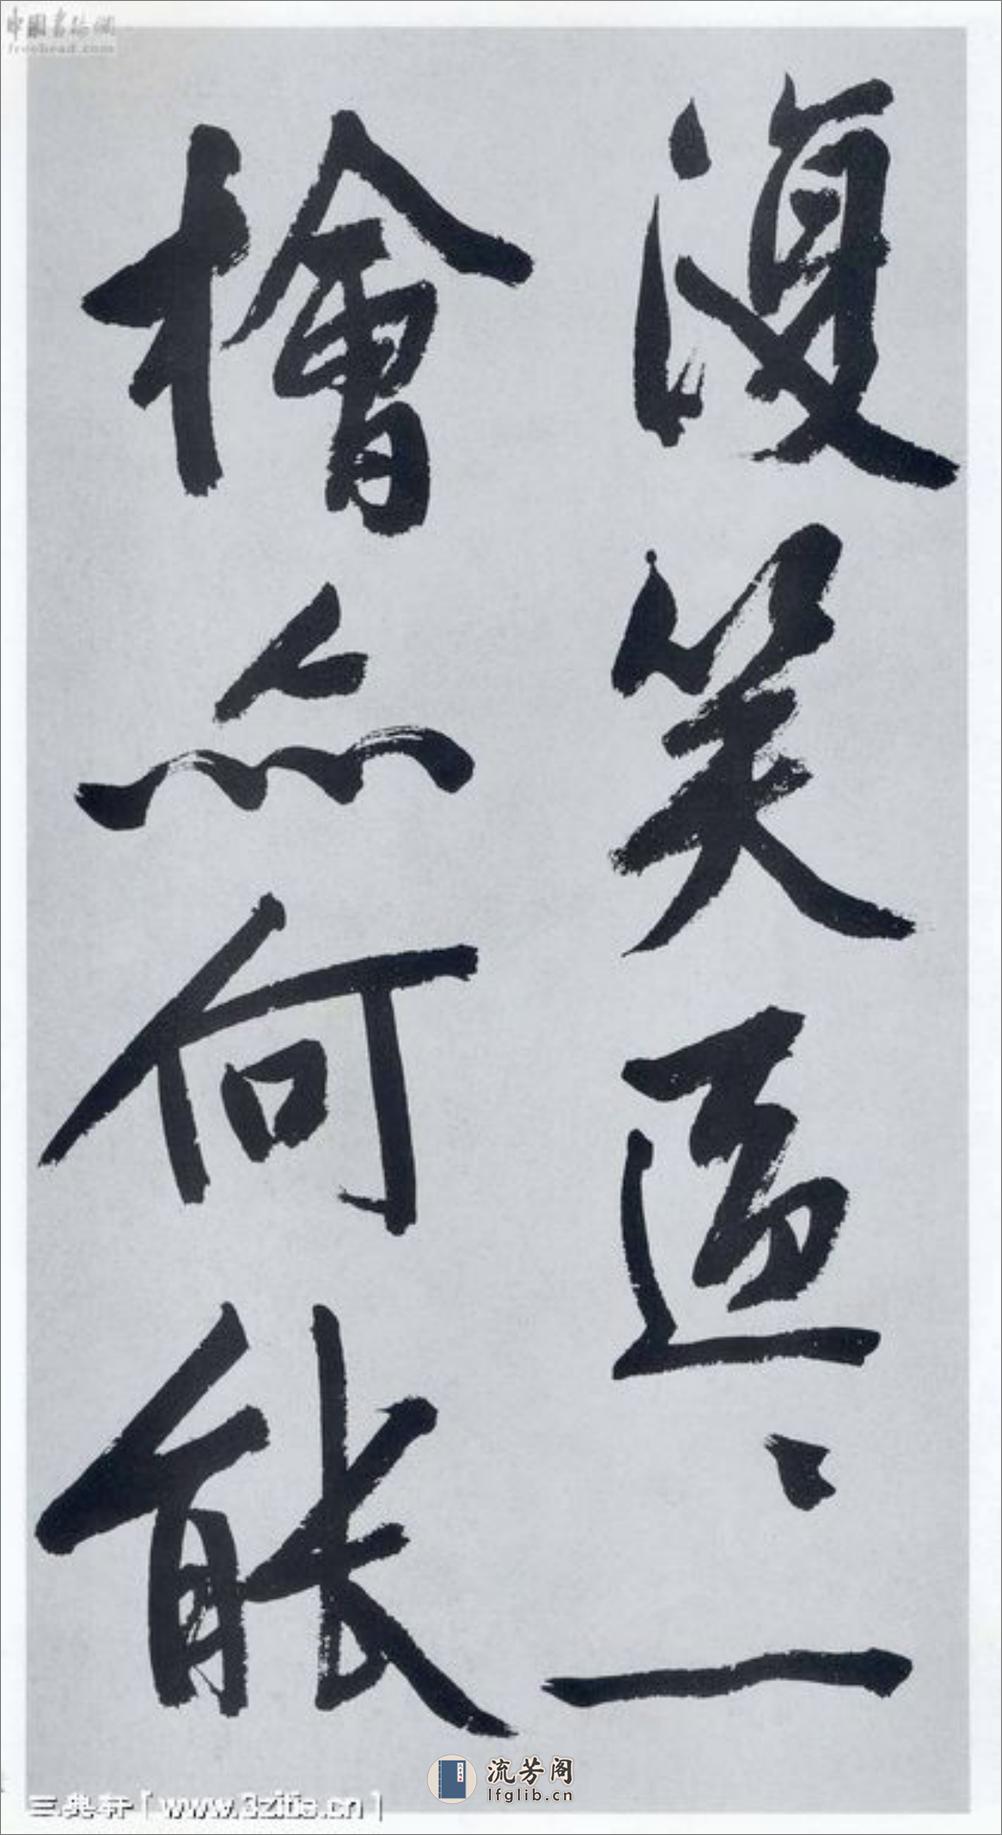 中國書法網
freehead.com
復笑區〻一
檜亦何能
流芳阁
lfglib.cn
三典轩[www.3zitie.cn]